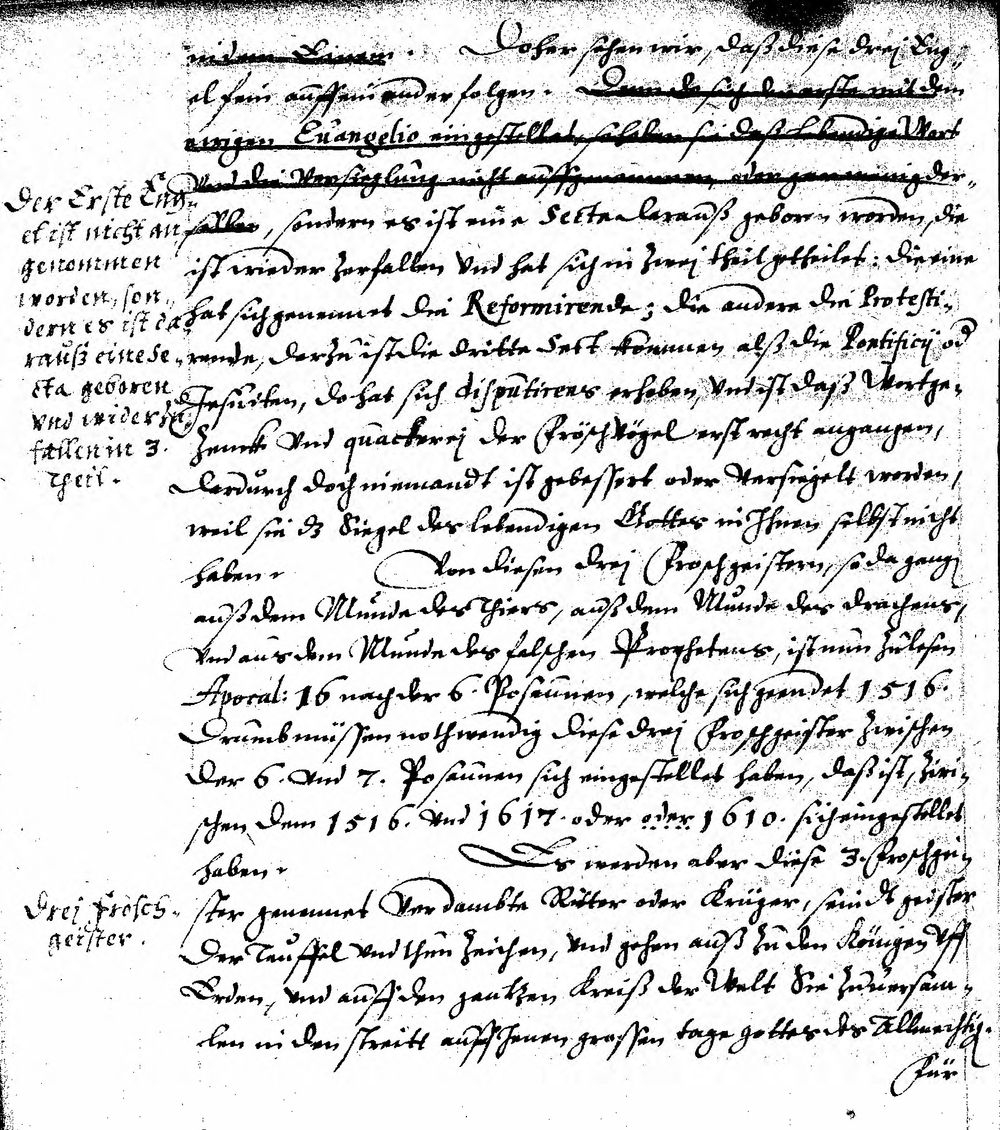 in dem Einen. Doher sehen wir, daß diese drej Eng-
el fein auffeinander folgen. Denn da sich der erste mit dem
ewigen Euangelio eingestellet, so haben sie daß lebendige Wort
Vnd die Versieglung nicht auffgenommen, oder gar wenig der-
selben, sondern es ist eine Secta darauß geboren worden, die
ist wieder zerfallen Vnd hat sich in zwej theil getheilet: die eine
hat sich genennet die Reformirende; die andere die Protesti-
rende, darzu ist die dritte Sect kommen alß die Pontificij od
Jesuiten, do hat sich disputirens erhoben, Vnd ist daß Wortge-
zenck Vnd quackerej der Fröschvögel erst recht angangen,
dardurch doch niemandt ist gebessert oder Versiegelt worden,
weil sie dz Siegel des lebendigen Gottes in Ihnen selbst nicht
haben. Von diesen drej Froschgeistern, so da gang
auß dem Munde des Thiers, auß dem Munde des drachens,
Vnd aus dem Munde des falschen Prophetens, ist nun zu lesen
Apocal: 16 nach der 6. Posaunen, welche sich geendet 1516.
Drumb müssen nothwendig diese drej Froschgeister zwischen
der 6. Vnd 7. Posaunen sich eingestellet haben, daß ist, zwi-
schen dem 1516. Vnd 1617. oder oder 1610. sich eingestellet
haben. Es werden aber diese 3. Froschgei-
ster genennet Verdambte Ritter oder Krüger, seindt geister
der Teuffel Vnd thun zeichen, Vnd gehen auß zu den Königen Vff
Erden, Vnd auff den gantzen Kreiß der Welt Sie zuuersam-
len in den streitt auff Jhenen grossen tage gottes des Allmechtig.
Für
Der Erste Eng-
el ist nicht an
genommen
worden, son-
dern es ist da
rauß eine Se-
cta geboren
Vnd wider zu
fallen in 3.
Theil.
Drej Frösch-
geister.